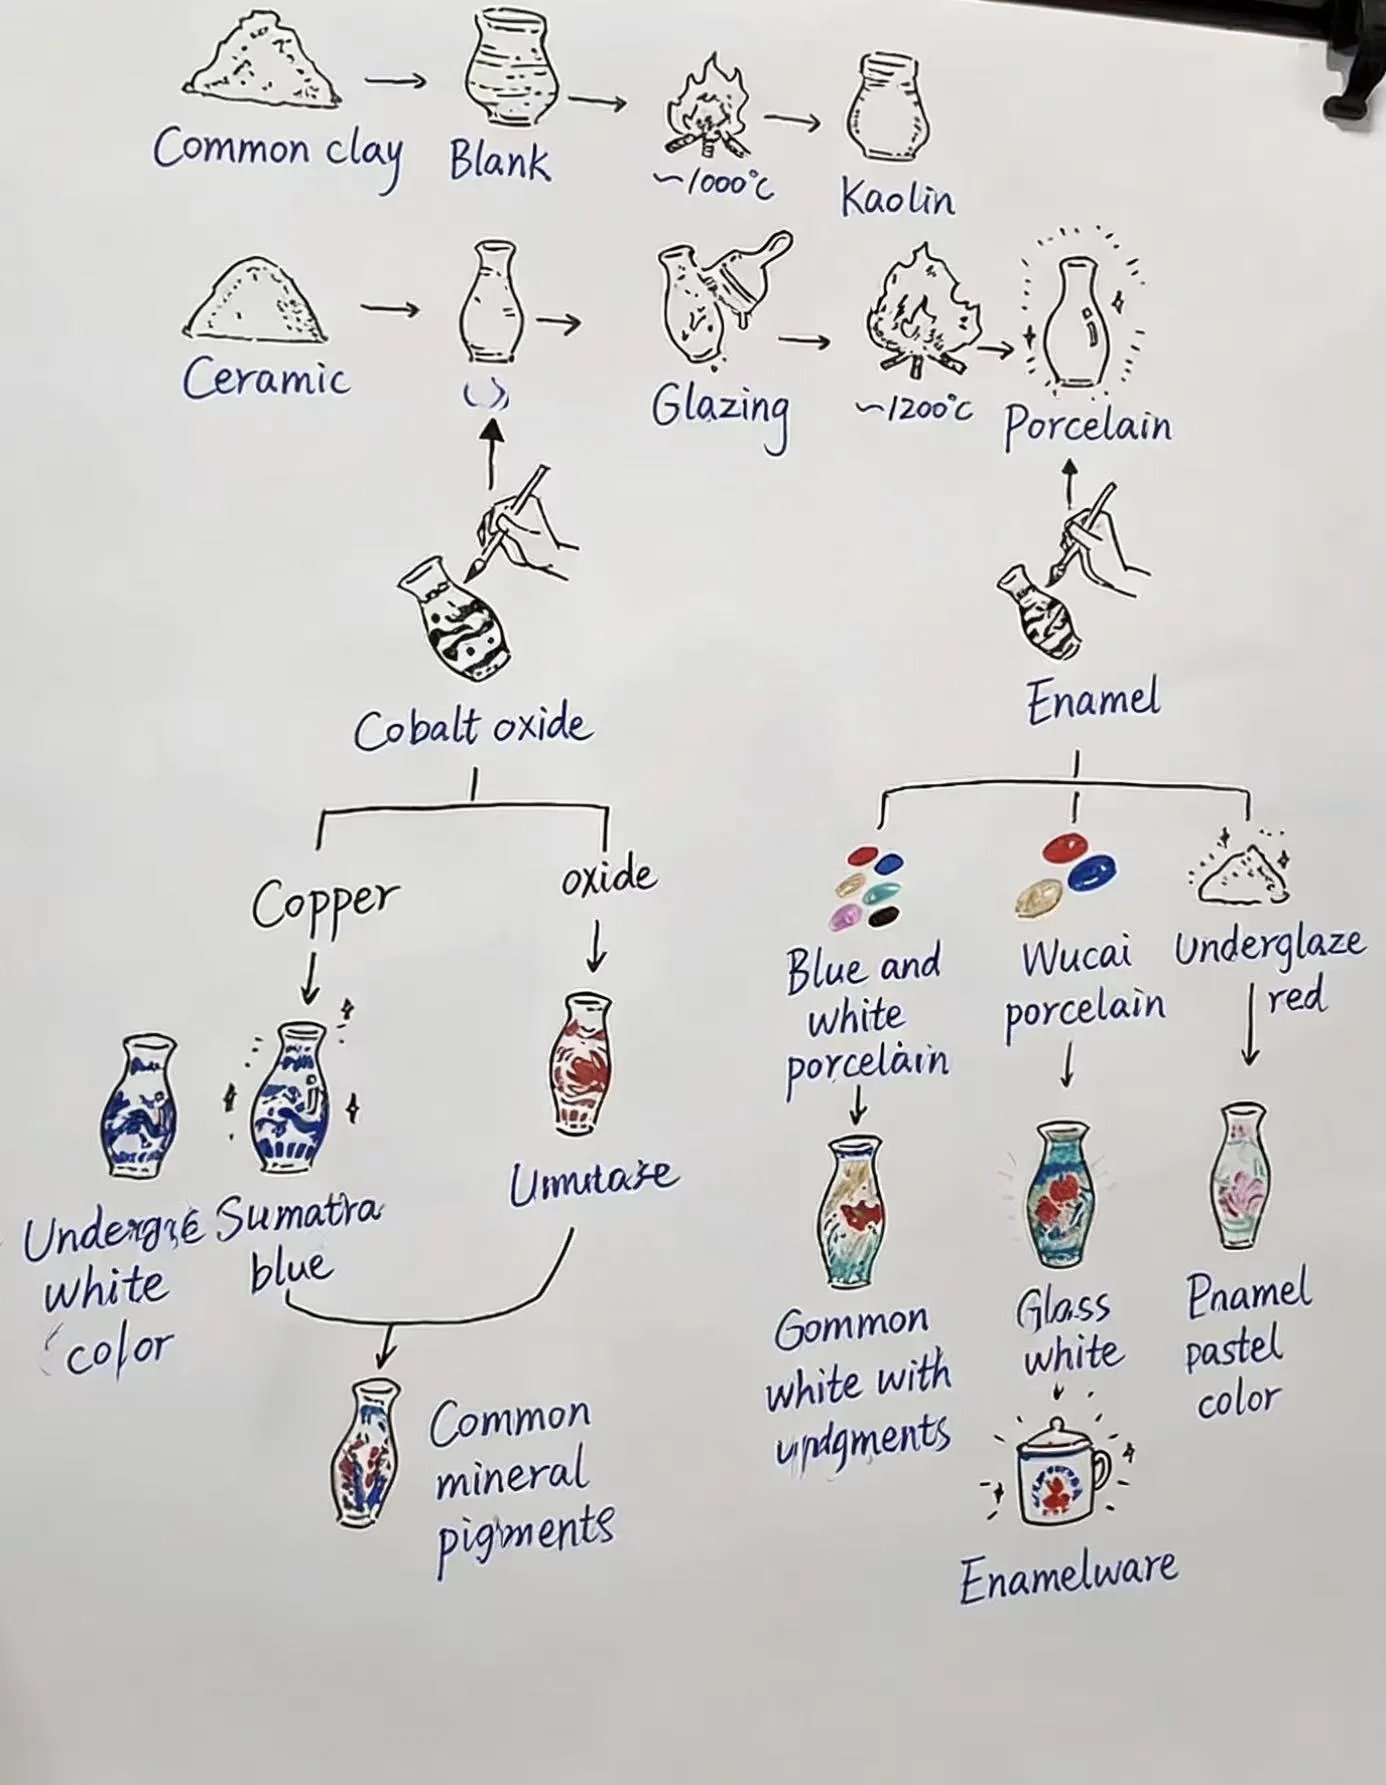 Common clay
Blank
~1000°C
Kaolin
Ceramic
Glazing
~1200°C
Porcelain
Cobalt oxide
Enamel
Copper
oxide
Blue and
white
porcelain
Wucai
porcelain
Underglaze
red
white
color
Sumatra
blue
Common
mineral
pigments
Gommon
white with
Glass
white
Pnamel
pastel
color
Enamelware